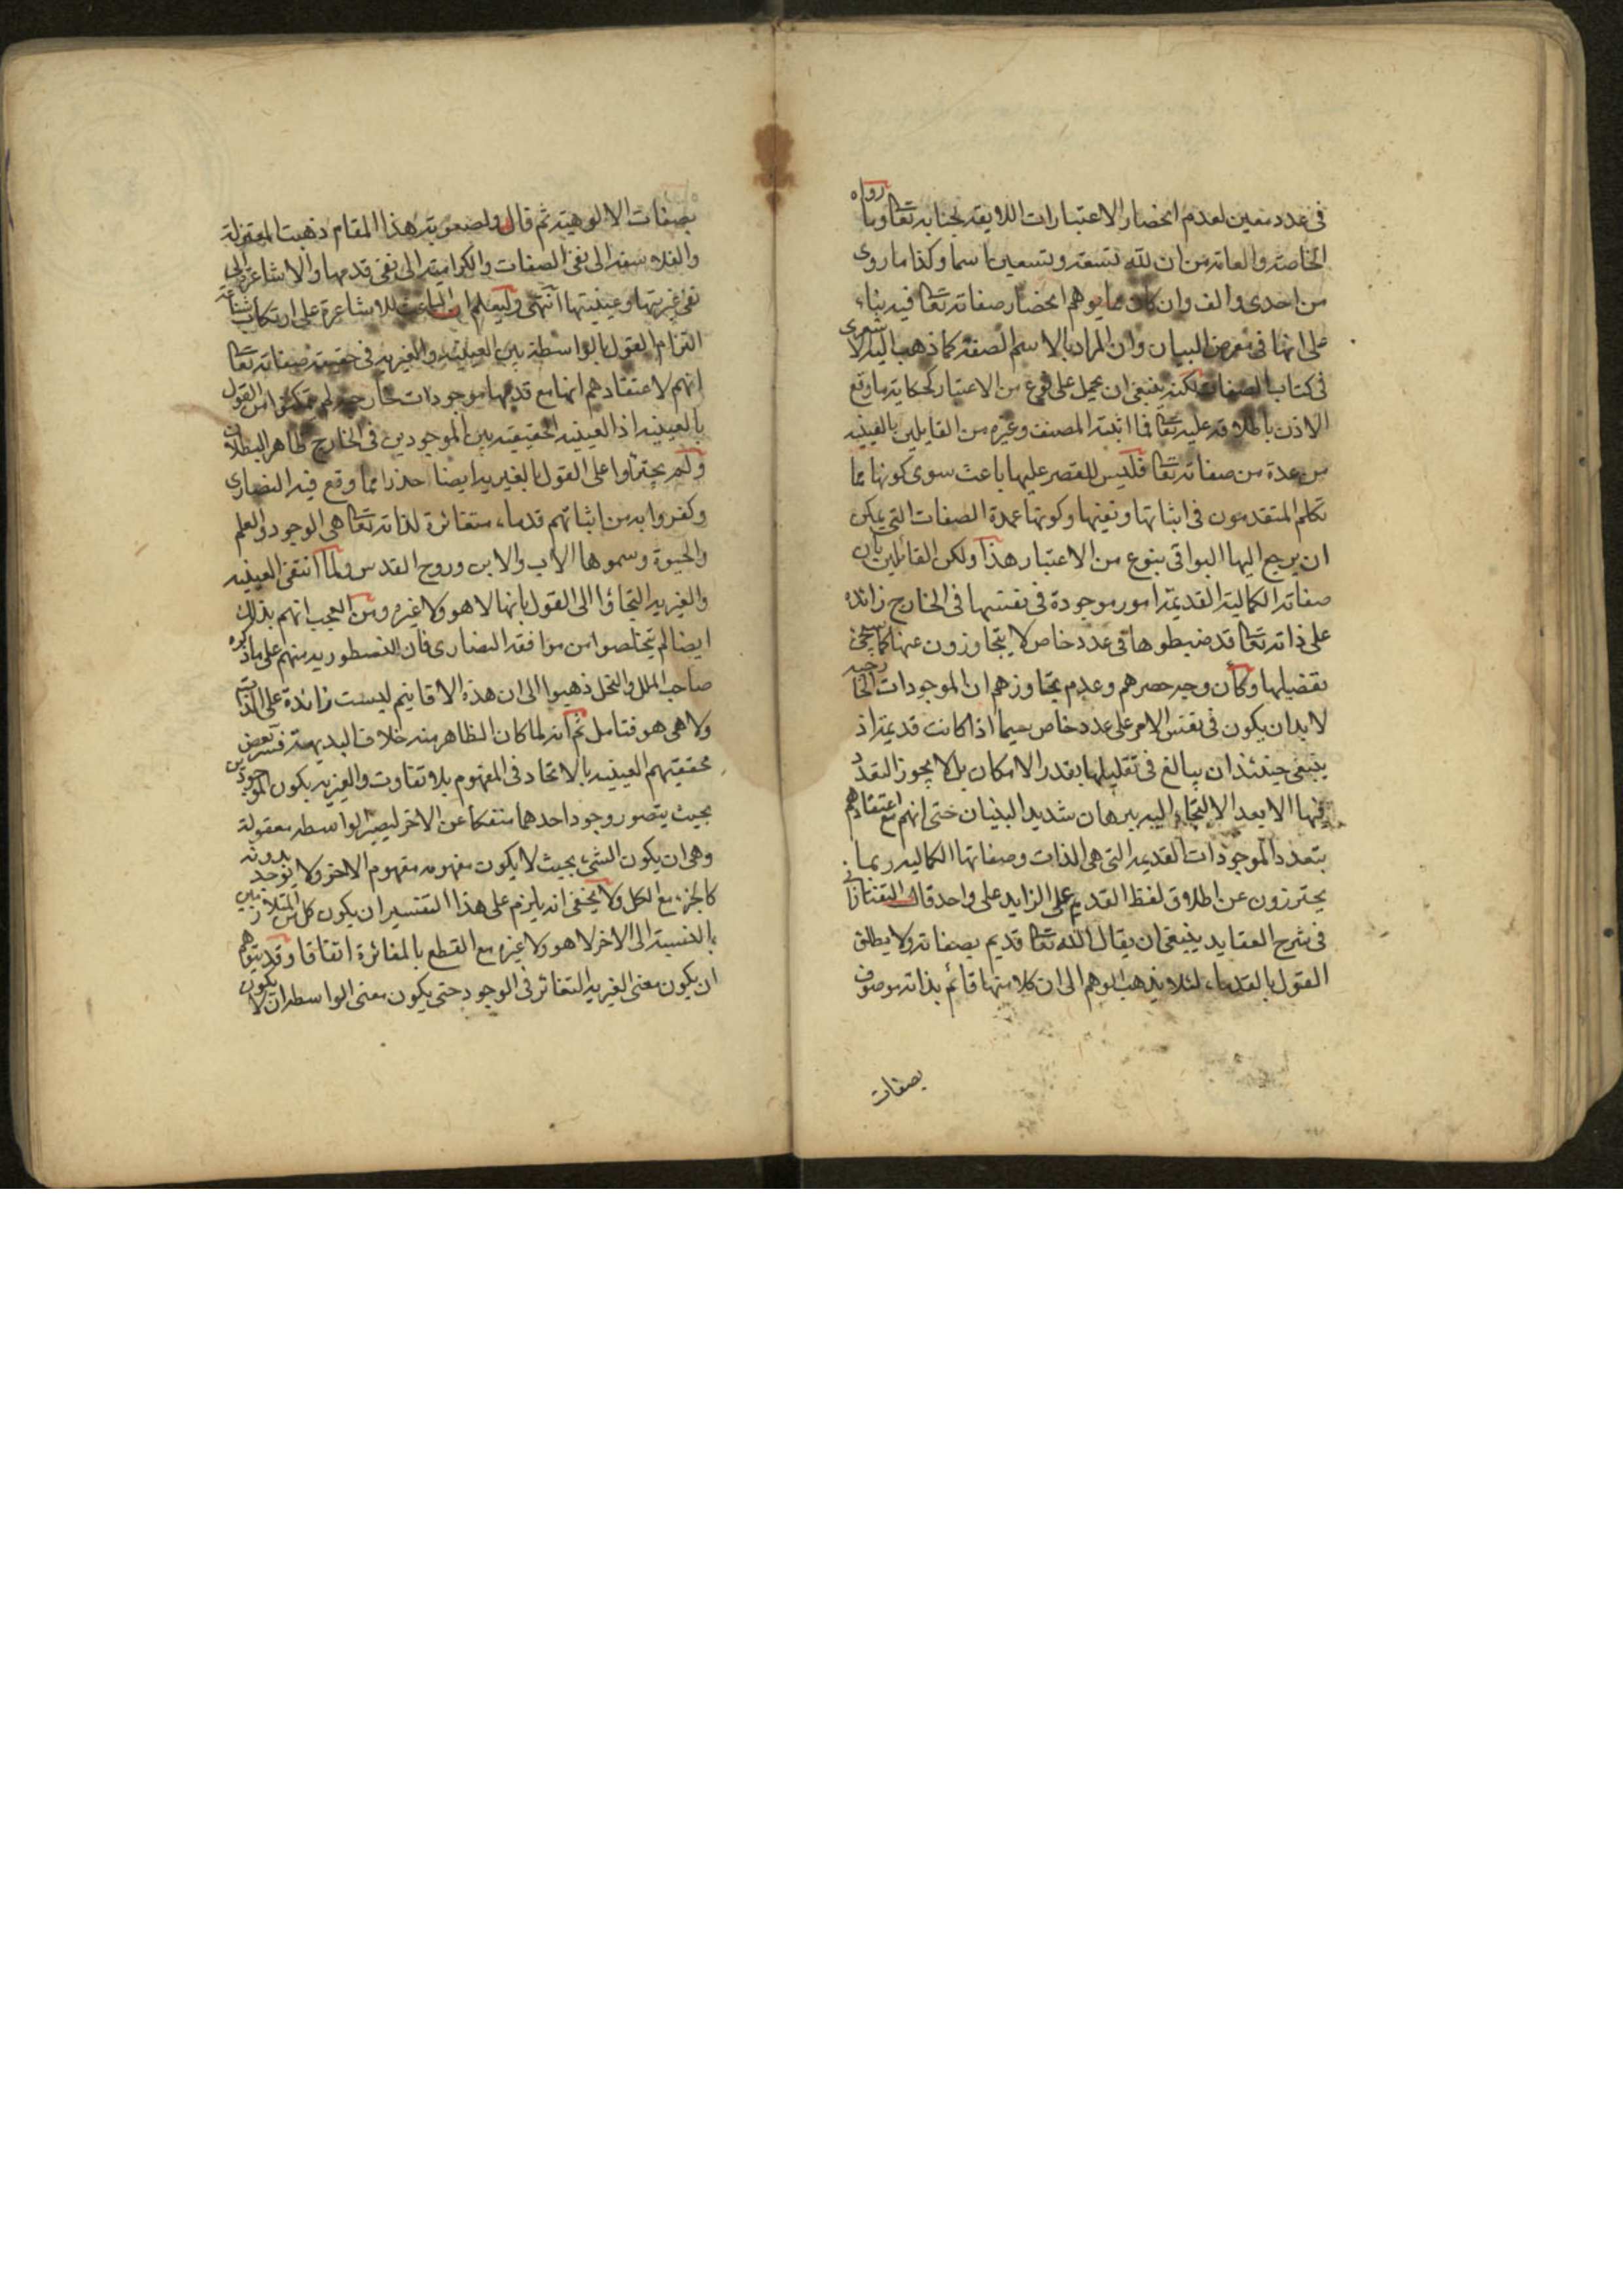 في عدد معين لعدم انحصار الاعتبارات اللايقة بجنابه تعالى وما رواه
الخاصة والعامة من ان لله تسعة وتسعين اسما وكذا ما روى
من احدى والف وان كان مما يوهم انحصار صفاته تعالى فيه بناء
على انها في معرض البيان وان المراد بالاسم الصفة كما ذهب اليه الاشعرى
في كتاب الصفات لكنه ينبغى ان يحمل على نوع من الاعتبار كحكاية ما وقع
الاذن باطلاقه عليه تعالى فما اثبته المصنف وغيره من القايلين بالعينية
من عدة من صفاته تعالى فليس للقصر عليها باعث سوى كونها مما
تكلم المتقدمون في اثباتها ونفيها وكونها عمدة الصفات التي يمكن
ان يرجع اليها البواقى بنوع من الاعتبار هذا ولكن القائلين بان
صفاته الكمالية القديمة امور موجودة في نفسها في الخارج زائدة
على ذاته تعالى قد ضبطوها في عدد خاص لا يتجاوزون عنها كما سيجئ
تفصيلها وكأن وجه حصرهم وعدم تجاوزهم ان الموجودات الخارجية
لا بد ان يكون في نفس الامر على عدد خاص سيما اذا كانت قديمة اذ
ينبغى حينئذ ان يبالغ في تقليلها بقدر الامكان بل لا يجوز التعدد
فيها الا بعد الالتجاء اليه ببرهان شديد البنيان حتى انهم مع اعتقادهم
بتعدد الموجودات القديمة التي هي الذات وصفاتها الكمالية ربما
يحترزون عن اطلاق لفظ القديم على الزايد على واحد قال التفتازانى
في شرح العقايد ينبغى ان يقال الله تعالى قديم بصفاته ولا يطلق
القول بالقدماء لئلا يذهب الوهم الى ان كلا منها قائم بذاته موصوف
بصفات
بصفات الالوهية ثم قال ولصعوبة هذا المقام ذهبت المعتزلة
والفلاسفة الى نفى الصفات والكرامية الى نفى قدمها والاشاعرة الى
نفى غيريتها وعينيتها انتهى وليعلم ان الباعث للاشاعرة على ارتكاب شناعة
التزام القول بالواسطة بين العينية والغيرية في صفاته تعالى
انهم لاعتقادهم انها مع قدمها موجودات خارجية لم يتمكنوا من القول
بالعينية اذ العينية الحقيقية بين الموجودين في الخارج ظاهر البطلان
ولم يجترؤا على القول بالغيرية ايضا حذرا مما وقع فيه النصارى
وكفروا به من اثباتهم قدماء متغائرة لذاته تعالى هي الوجود والعلم
والحيوة وسموها الاب والابن وروح القدس ولما انتفى العينية
والغيرية التجاؤا الى القول بانها لا هو ولا غيره ومن العجب انهم بذلك
ايضا لم يتخلصوا من موافقة النصارى فان النسطورية منهم على ما ذكره
صاحب الملل والنحل ذهبوا الى ان هذه الاقانيم ليست زائدة على الذات
ولا هي هو فتامل ثم انه لما كان الظاهر منه خلاف البديهة فسر بعض
محققيهم العينية بالاتحاد في المفهوم بلا تفاوت والغيرية بكون الموجودين
بحيث يتصور وجود احدهما منفكا عن الاخر ليصير الواسطة معقولة
وهي ان يكون الشئ بحيث لا يكون مفهومه مفهوم الاخر ولا يوجد بدونه
كالجزء مع الكل ولا يخفى انه يلزم على هذا التفسير ان يكون كل من المتلازمين
بالنسبة الى الاخر لا هو ولا غيره مع القطع بالمغائرة اتفاقا وقد يتوهم
ان يكون معنى الغيرية التغائر في الوجود حتى يكون معنى الواسطة ان لا يكون